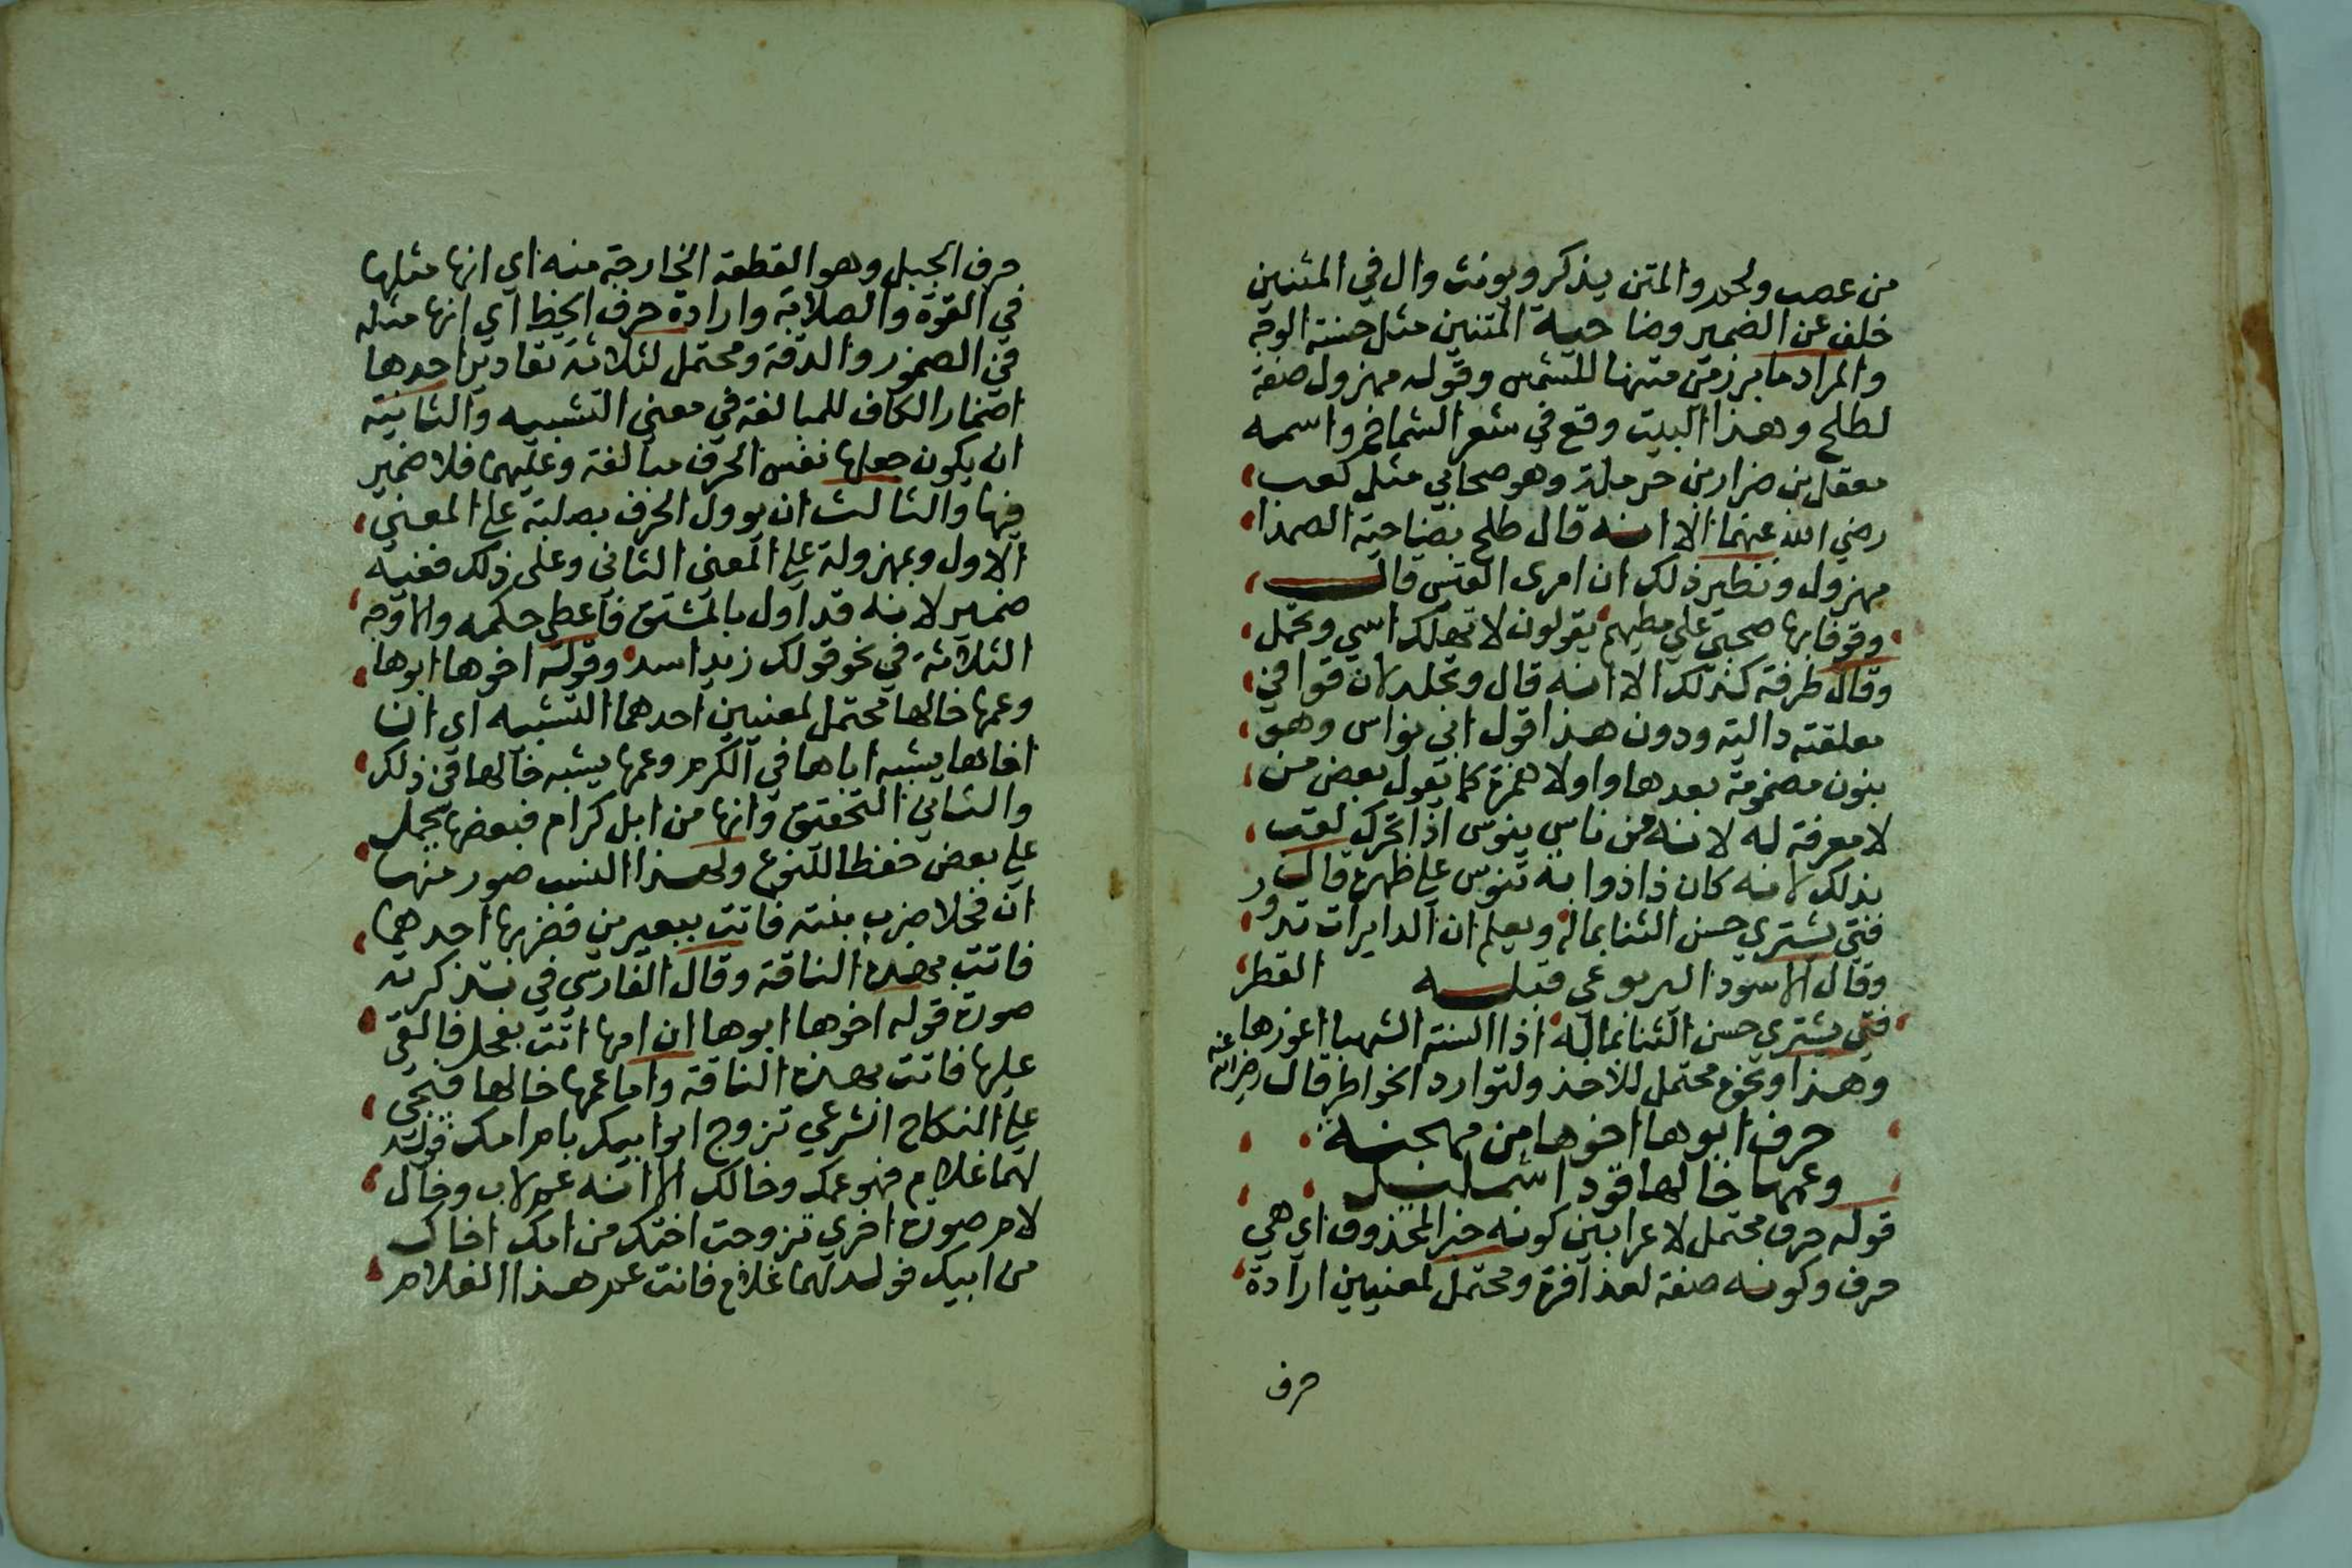 من عصب ولحم والمتن يذكر ويونث وال في المتنين
خلف عن الضمير وضاحية المتنين مثل حسنة الوجه
والمراد ما برز من متنها للشمس وقوله مهزول صفة
لطلح وهذا البيت وقع في شعر الشماخ واسمه
معقل بن ضرار بن حرملة وهو صحابي مثل كعب
رضي الله عنهما الا انه قال طلح بضاحية الصيدا
مهزول ونظير ذلك ان امرى القيس قال
وقوفا بها صحبي علي مطيهم يقولون لا تهلك اسي وتحمل
وقال طرفة كذلك الا انه قال وتجلد لان قوافي
معلقته دالية ودون هذا قول ابي نواس وهو
بنون مضمومة بعدها واو لا همزة كما يقول بعض من
لا معرفة له لانه من ناس ينوس اذا تحرك لقب
بذلك لانه كان ذا ذوابة تنوس علي ظهره قال
فتى يشتري حسن الثنا بماله ويعلم ان الدايرات تدور
وقال الاسود اليربوعي قبله القطر
فتى يشتري حسن الثنا بماله اذا السنة الشهبا اعوزها
وهذا ونحوه محتمل للاخذ ولتوارد الخواطر قال رضي الله عنه
حرف ابوها اخوها من مهجنة
وعمها خالها قودا شمليل
قوله حرف محتمل لاعرابين كونه خبرا لمحذوف اي هي
حرف وكونه صفة لعذافرة ومحتمل لمعنيين ارادة
حرف
حرف الجبل وهو القطعة الخارجة منه اي انها مثلها
في القوة والصلابة وارادة حرف الخط اي انها مثله
في الضمور والدقة ومحتمل لثلاثة تقادير احدها
اضمار الكاف للمبالغة في معنى التشبيه والثانية
ان يكون جعلها نفس الحرف مبالغة وعليهما فلا ضمير
فيها والثالث ان يوول الحرف بصلبة علي المعنى
الاول وبمهزولة علي المعنى الثاني وعلى ذلك ففيه
ضمير لانه قد اول بالمشتق فاعطي حكمه والاوجه
الثلاثة في نحو قولك زيد اسد وقوله اخوها ابوها
وعمها خالها محتمل لمعنيين احدهما التشبيه اي ان
اخاها يشبه اباها في الكرم وعمها يشبه خالها في ذلك
والثاني التحقيق وانها من ابل كرام فبعضها يحمل
علي بعض حفظا للنوع ولهذا النسب صور منها
ان فحلا ضرب بنته فاتت ببعيرين فضربها احدهما
فاتت بهذه الناقة وقال الفارسي في تذكرته
صورة قوله اخوها ابوها ان امها اتت بفحل فالقي
عليها فاتت بهذه الناقة واما عمها خالها فيجي
علي النكاح الشرعي تزوج ابو ابيك بام امك فولد
لهما غلام فهو عمك وخالك الا انه عم لاب وخال
لام صورة اخرى تزوجت اختك من امك اخاك
من ابيك فولد لهما غلام فانت عم هذا الغلام